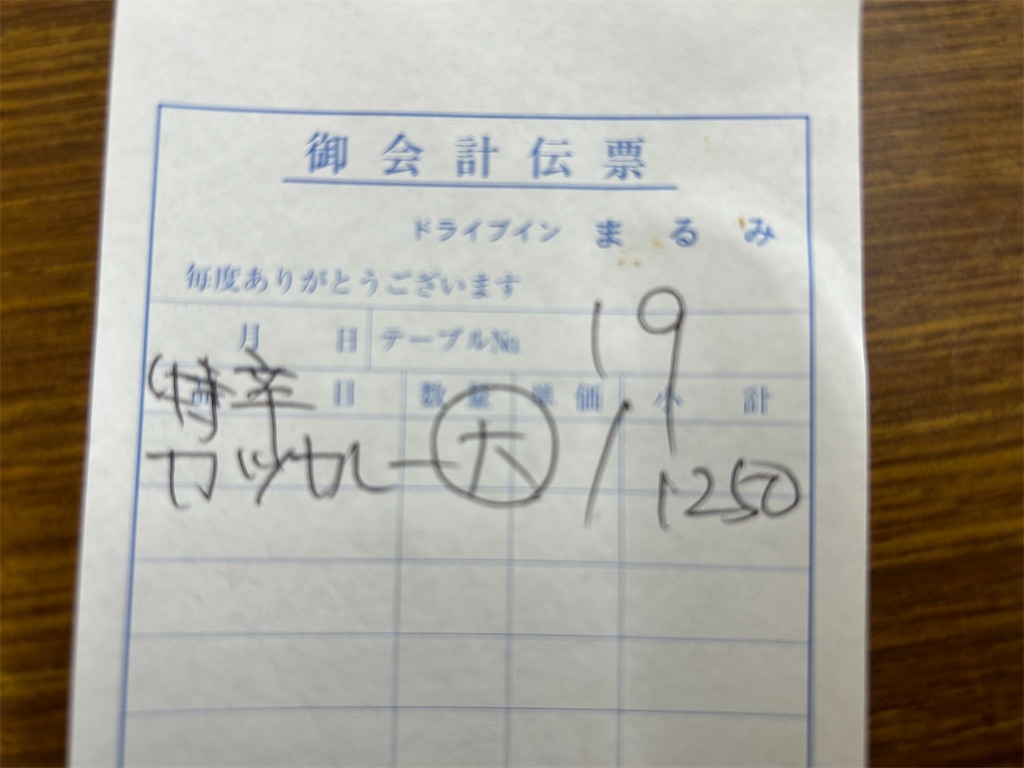 御会計伝票
ドライブイン まるみ
毎度ありがとうございます
月 日 テーブル№ 19
品目 数量 単価 小計
特辛
カツカレー 大 / 1250